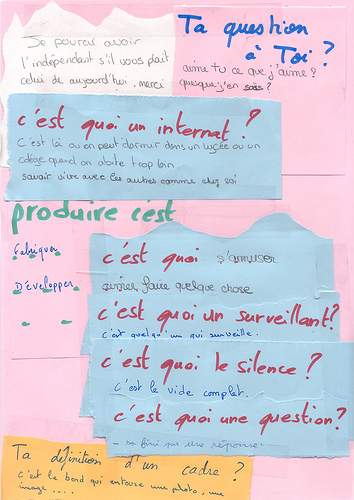 Je pourrai avoir
l'indépendant s'il vous plait
celui de aujourd'hui. merci
Ta question
à Toi ?
aime tu ce que j'aime ?
quesque j'en sais ?
c'est quoi un internat ?
C'est là ou on peut dormir dans un lycée ou un
collège quand on abite trop loin
savoir vivre avec les autres comme chez soi
produire c'est
Fabriquer
Développer
c'est quoi s'amuser
faire quelque chose
c'est quoi un surveillant ?
c'est quelqu'un qui surveille.
c'est quoi le silence ?
C'est le vide complet.
c'est quoi une question ?
par une réponse.
Ta définition d'un cadre ?
c'est le bord qui entoure une photo, une
image ....